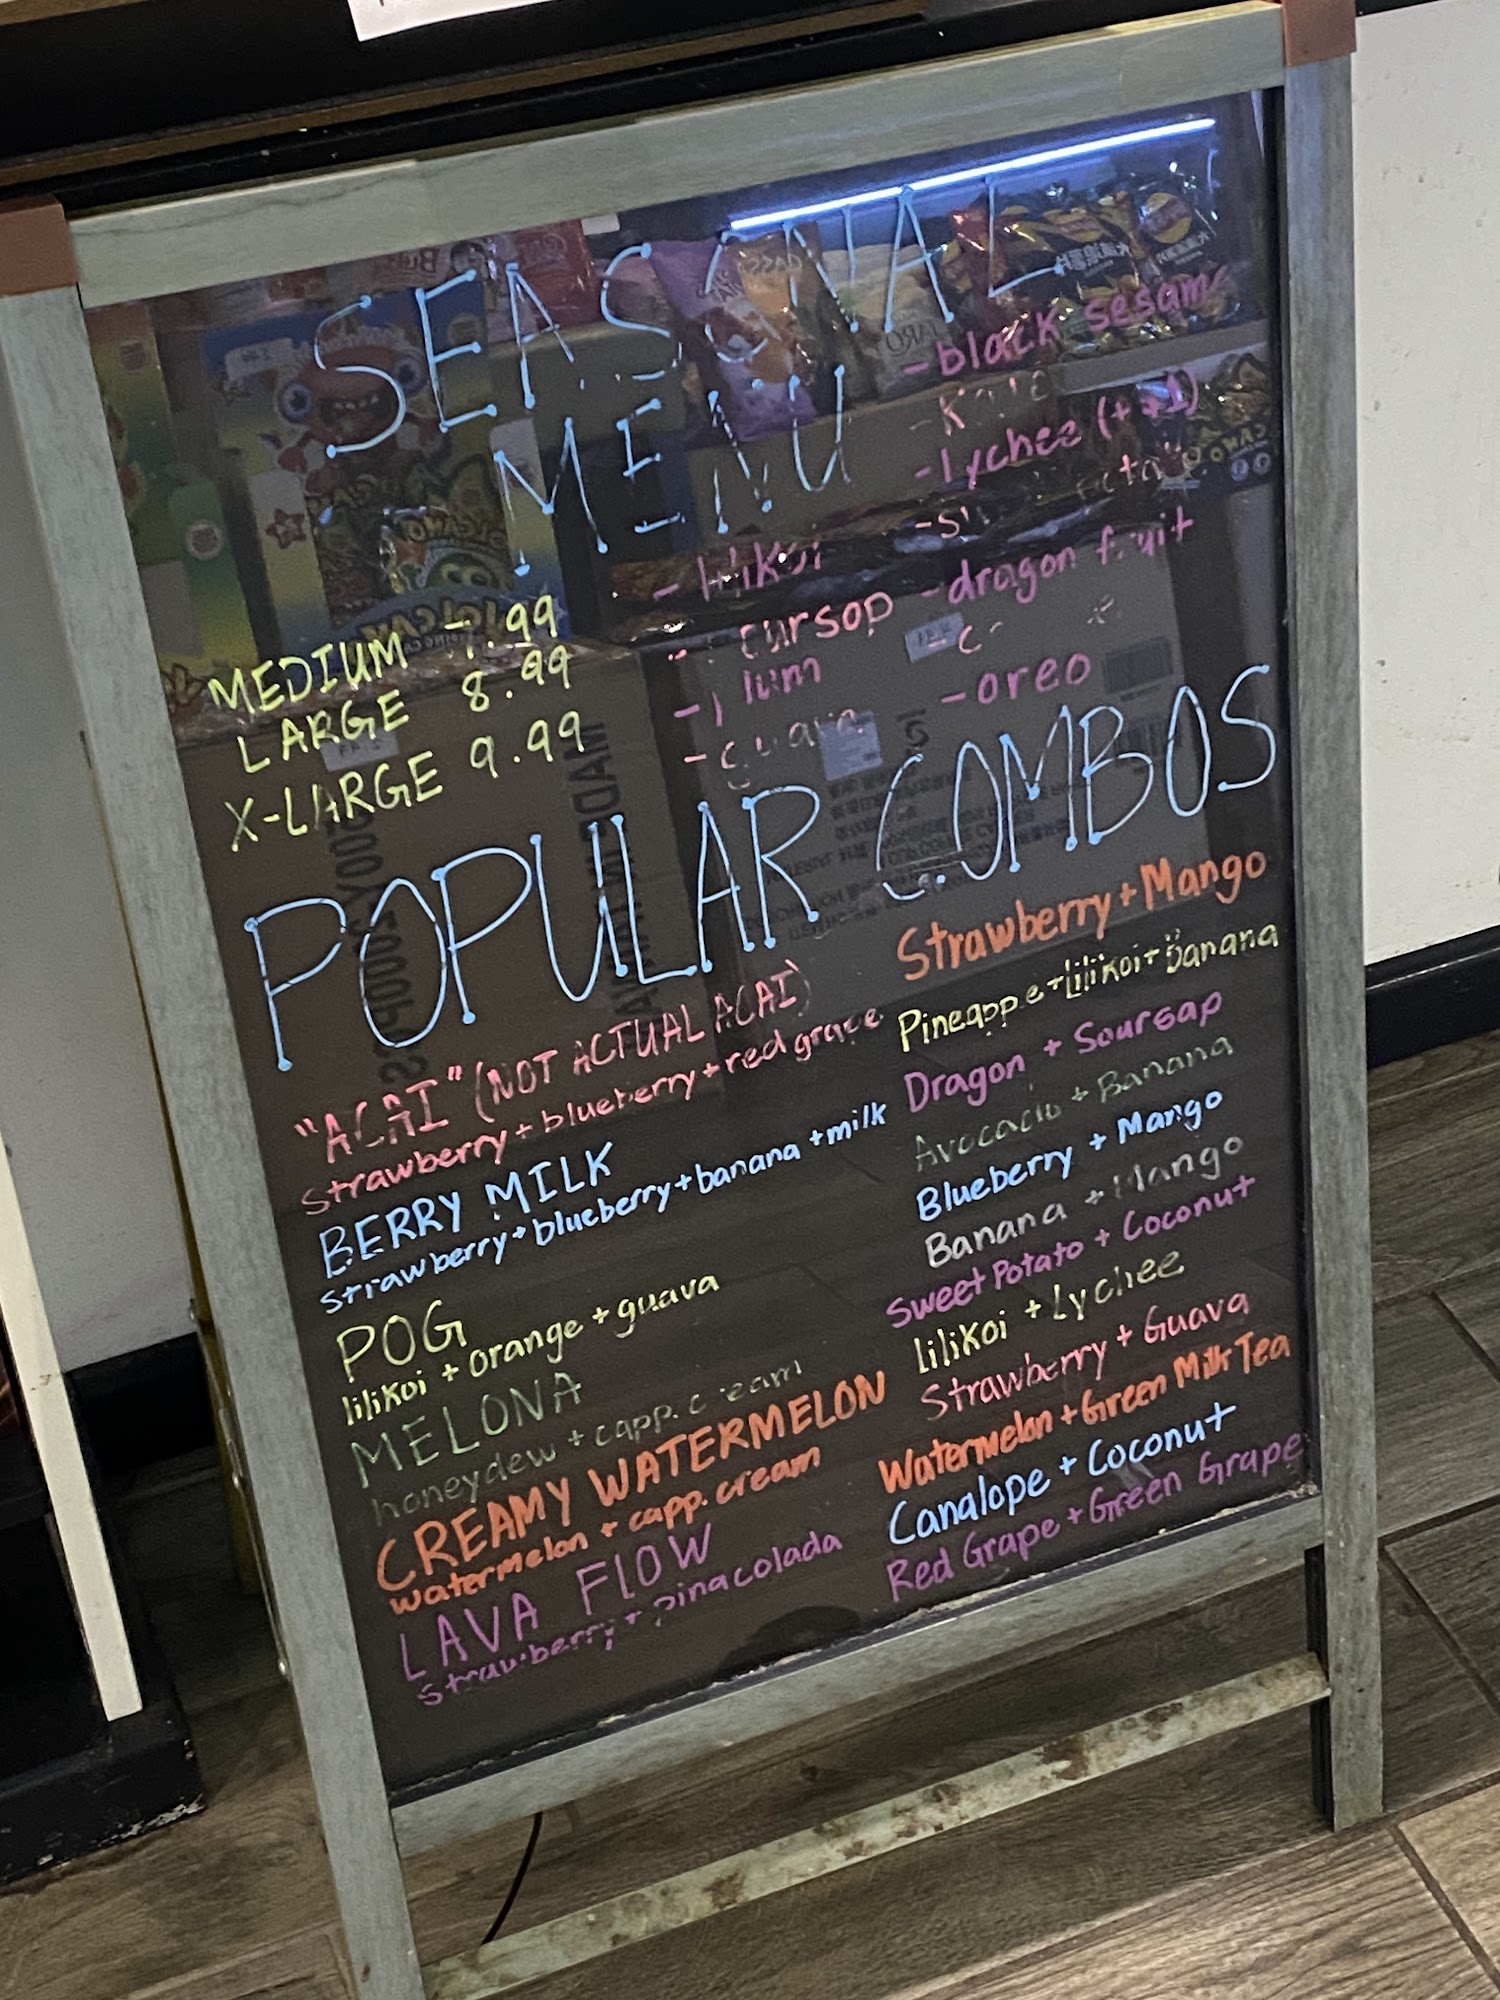 SEASONAL
MENU
MEDIUM 7.99
LARGE 8.99
X-LARGE 9.99
- lilikoi
- guava
- black sesam
- lychee
- dragon fruit
- oreo
POPULAR COMBOS
"ACAI" (NOT ACTUAL ACAI)
strawberry + blueberry + red grape
BERRY MILK
strawberry + blueberry + banana + milk
POG
lilikoi + orange + guava
MELONA
honeydew + capp. cream
CREAMY WATERMELON
watermelon + capp. cream
LAVA FLOW
strawberry + pina colada
Strawberry + Mango
Pineapp e + Lilikoi + Banana
Dragon + Soursap
Avocado + Banana
Blueberry + Mango
Banana + Mango
Sweet Potato + Coconut
Lilikoi + Lychee
Strawberry + Guava
Watermelon + Green Milk Tea
Canalope + Coconut
Red Grape + Green Grape